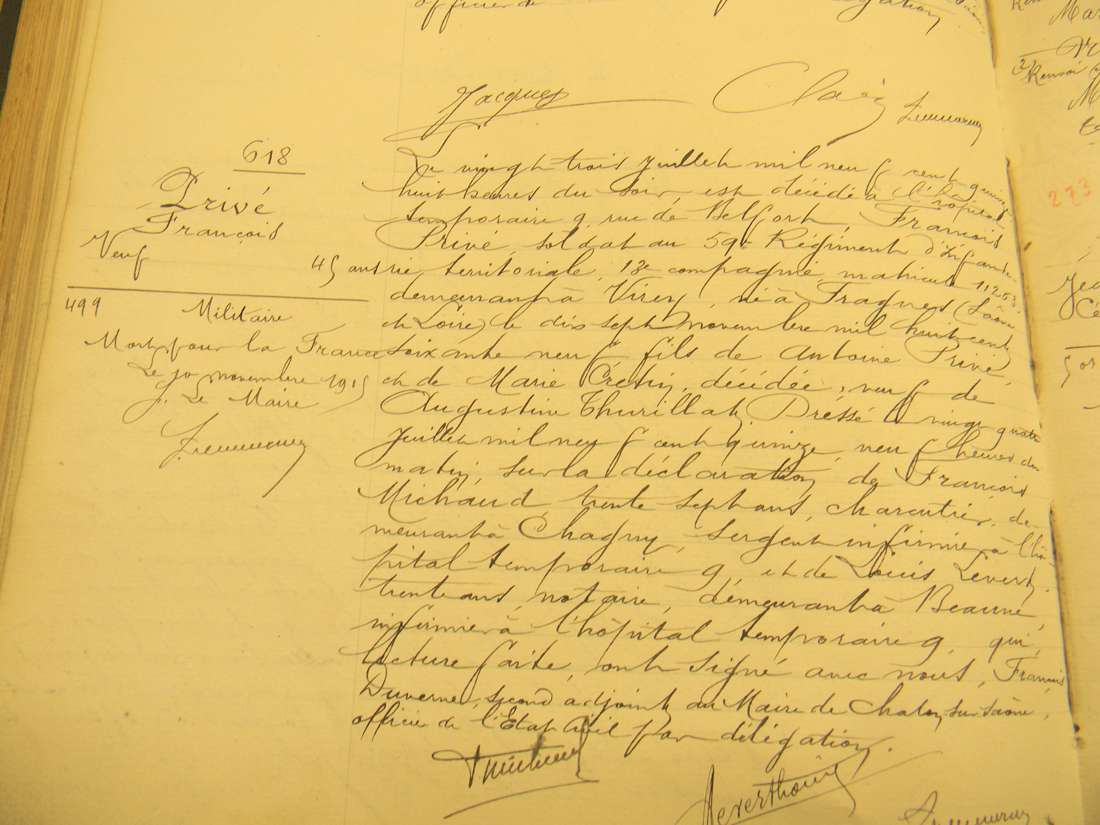 officier de
Jacques
618
Privé
François
Veuf
45 ans
499
Militaire
Mort pour la France
Le 10 novembre 1915
Le Maire
Le vingt trois juillet mil neuf cent quinze
huit heures du soir, est décédé à l'hôpital
temporaire 9, rue de Belfort François
Privé, soldat au 59e Régiment d'Infante-
rie territoriale, 13e compagnie matricule 11253,
demeurant à Virey, né à Fragnes (Saône
et Loire) le dix sept novembre mil huit cent
soixante neuf fils de Antoine Privé,
et de Marie Cretin, décédée, veuf de
Augustine Thurillat, Dressé le vingt quatre
juillet mil neuf cent quinze, neuf heures du
matin, sur la déclaration de François
Michaud, trente sept ans, charcutier, de-
meurant à Chagny, sergent infirmier à l'hô-
pital temporaire 9 et de Louis Levert,
trente ans, notaire, demeurant à Beaune,
infirmier à l'hôpital temporaire 9, qui,
lecture faite, ont signé avec nous, Francis
Duverne, second adjoint du Maire de Chalon sur Saône,
officier de l'Etat civil par délégation.
273